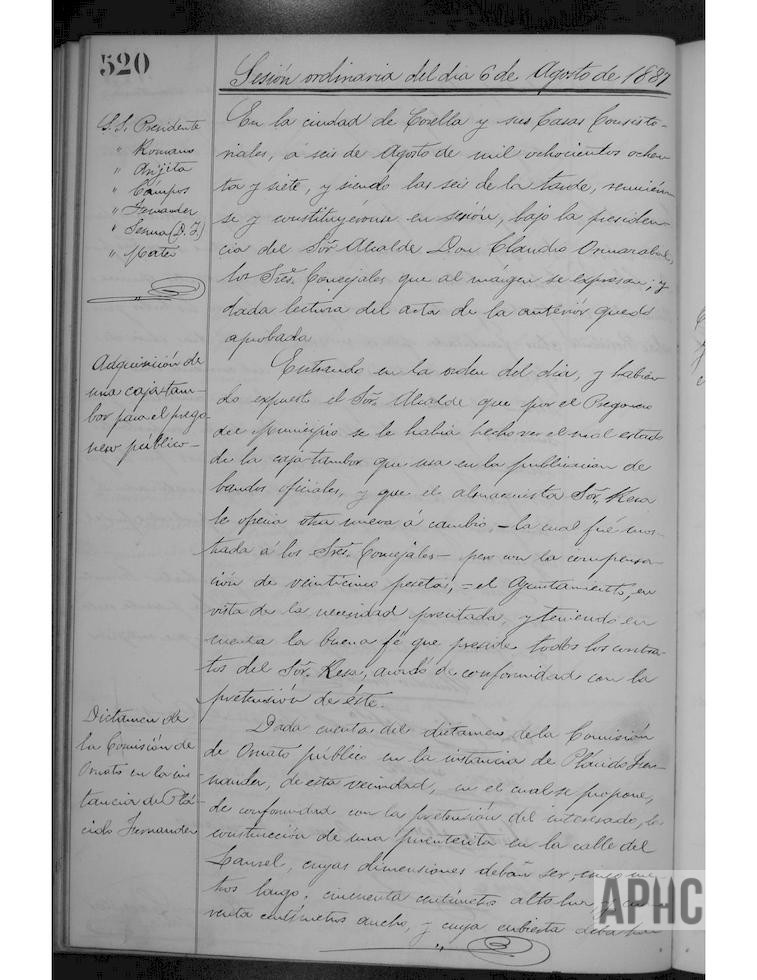 520
Sesión ordinaria del dia 6 de Agosto de 1887
S.S. Presidente
" Romano
" Argita
" Cámpos
" Fernander
" Serna (D. F.)
" Mateo
En la ciudad de Corella y sus Casas Consisto-
riales, á seis de Agosto de mil ochocientos ochen-
ta y siete, y siendo las seis de la tarde, reunieron-
se y constituyéronse en sesión, bajo la presiden-
cia del Sor. Alcalde Don Claudio
los Sres. Concejales que al márgen se expresan; y
dada lectura del acta de la anterior quedó
aprobada
Adquisición de
una caja-tam-
bor para el prego-
nero público—
Entrando en la orden del dia, y habien-
do expuesto el Sor. Alcalde que por el Pregonero
del Municipio se le habia hecho ver el mal estado
de la caja-tambor que usa en la publicacion de
bandos oficiales, y que el almacenista Sor. Kesa
le ofrecia otra nueva á cambio, — la cual fué mos-
trada á los Sres. Concejales — pero con la compensa-
ción de veinticinco pesetas, = el Ayuntamiento, en
vista de la necesidad presentada, y teniendo en
cuenta la buena fé que preside todos los contra-
tos del Sor. Kesa, acordó de conformidad con la
pretensión de éste.
Dictamen de
la Comisión de
Ornato en la ins-
tancia de Plá-
cido Fernander
Dada cuenta del dictamen de la Comisión
de Ornato público en la instancia de Plácido Fer-
nander, de esta vecindad, en el cual se propone,
de conformidad con la pretensión del interesado, la
construcción de una puentecita en la calle del
Laurel, cuyas dimensiones deban ser: me-
tros largo, cincuenta centímetros alto luz, y
venta centímetros ancho, y cuya cubierta deba
APHC